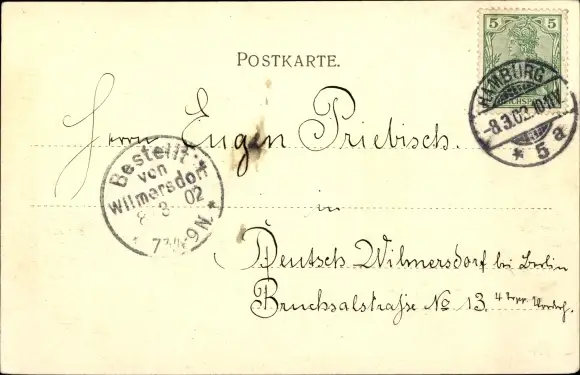 5 5
REICHSPOST
POSTKARTE.
HAMBURG
-8.3.02.10-11V.
* 5 a
Herrn Eugen Priebisch.
Bestellt
von
Wilmersdorf
8 3 02
in
Deutsch Wilmersdorf bei Berlin
Bruchsalstraße No 13. 4